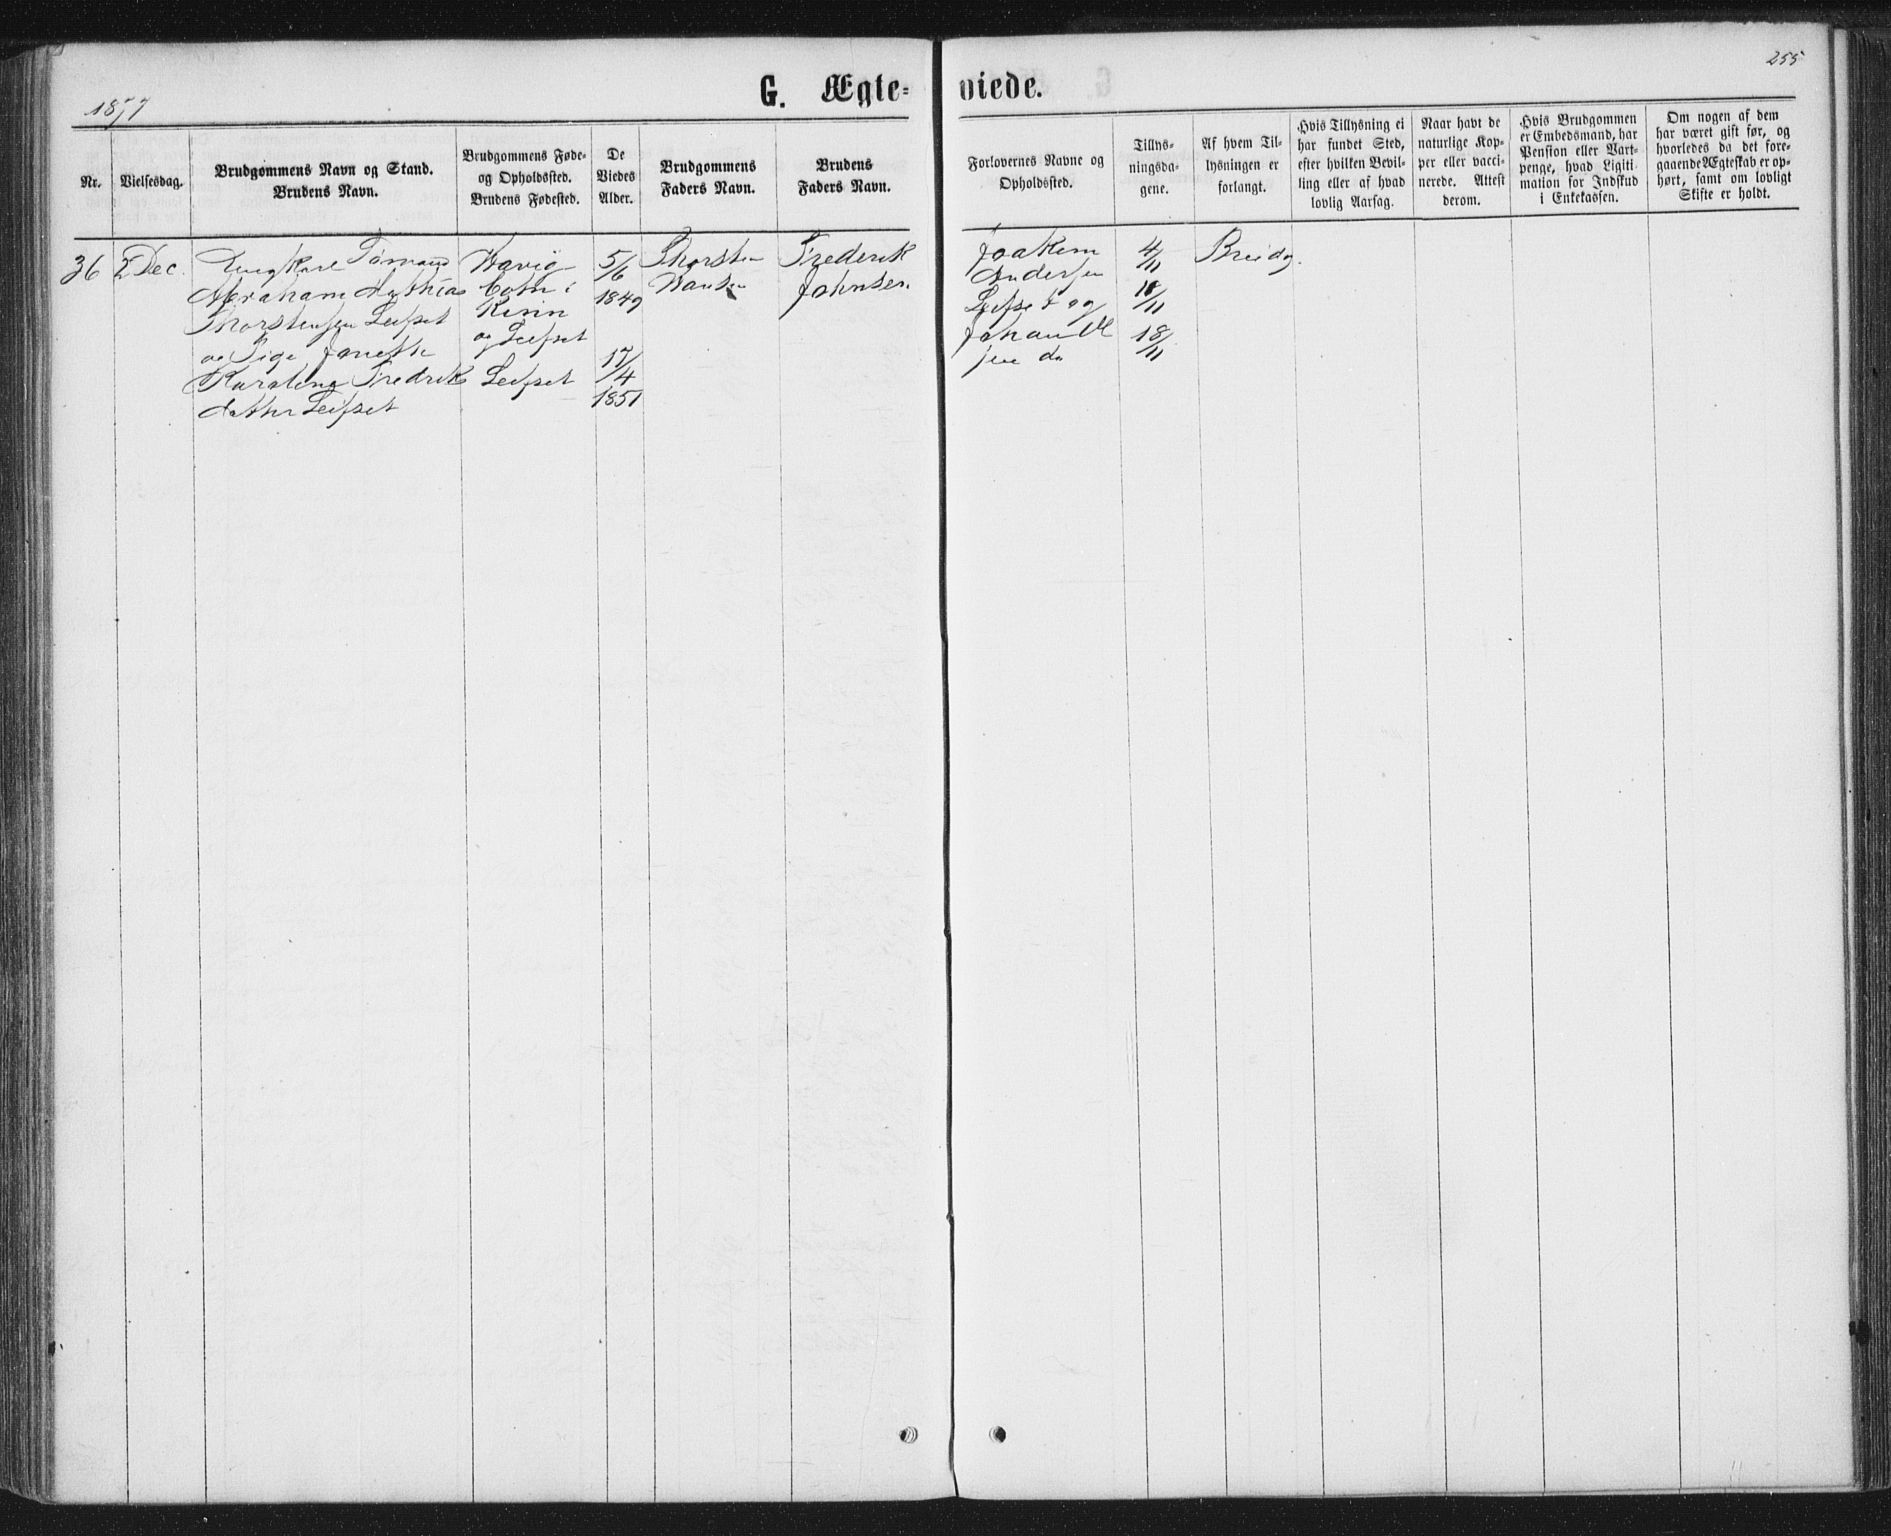 255
1877
G. Ægte= viede.
Nr.
Vielsesdag.
Brudgommens Navn og Stand.
Brudens Navn.
Brudgommens Føde-
og Opholdssted.
Brudens Fødested.
De
Viedes
Alder.
Brudgommens
Faders Navn.
Brudens
Faders Navn.
Forlovernes Navne og
Opholdssted.
Tillys-
ningsda-
gene.
Af hvem Til-
lysningen er
forlangt.
Hvis Tillysning ei
har fundet Sted,
efter hvilken Bevil-
ling eller af hvad
lovlig Aarsag.
Naar havt de
naturlige Kop-
per eller vacci-
nerede. Attest
derom.
Hvis Brudgommen
er Embedsmand, har
Pension eller Vart-
penge, hvad Ligiti-
mation for Indskud
i Enkekassen.
Om nogen af dem
har været gift før, og
hvorledes da det fore-
gaaende Ægteskab er op-
hørt, samt om lovligt
Skifte er holdt.
36
2 Dec.
Ungkarl Tømmand
Abraham Mathias
Thorstensen Leifset
og Pige
Karolina Fredriks
datter Leifset
Havig
i
Kinn
og Leifset
Leifset
5/6
1849
17/4
1851
Thorsten
Hansen
Frederik
Johnsen
Joakim
Andersen
Leifset og
Johan
do
4/11
11/11
18/11
Brudg.